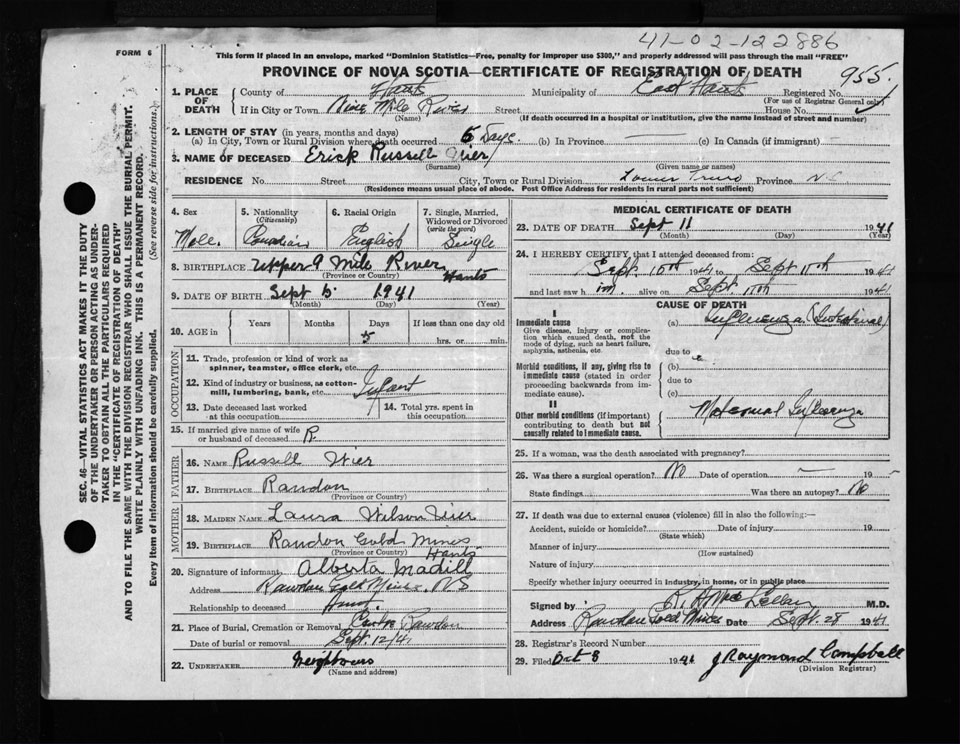 41-02-122886
FORM 6
This form if placed in an envelope, marked "Dominion Statistics—Free, penalty for improper use $300," and properly addressed will pass through the mail "FREE"
PROVINCE OF NOVA SCOTIA—CERTIFICATE OF REGISTRATION OF DEATH
955.
SEC. 46—VITAL STATISTICS ACT MAKES IT THE DUTY
OF THE UNDERTAKER OR PERSON ACTING AS UNDER-
TAKER TO OBTAIN ALL THE PARTICULARS REQUIRED
IN THE "CERTIFICATE OF REGISTRATION OF DEATH"
AND TO FILE THE SAME WITH THE DIVISION REGISTRAR WHO SHALL ISSUE THE BURIAL PERMIT.
WRITE PLAINLY WITH UNFADING INK. THIS IS A PERMANENT RECORD.
Every item of information should be carefully supplied. (See reverse side for instructions.)
1. PLACE OF DEATH
County of Hants Municipality of East Hants Registered No.
(For use of Registrar General only)
If in City or Town Nine Mile River Street House No.
(Name) (If death occurred in a hospital or institution, give the name instead of street and number)
2. LENGTH OF STAY (in years, months and days)
(a) In City, Town or Rural Division where death occurred 6 Days (b) In Province (c) In Canada (if immigrant)
3. NAME OF DECEASED Erick Russell Wier
(Surname) (Given name or names)
RESIDENCE No. Street City, Town or Rural Division Lower Truro Province N.S.
(Residence means usual place of abode. Post Office Address for residents in rural parts not sufficient)
4. Sex 5. Nationality (Citizenship) 6. Racial Origin 7. Single, Married, Widowed or Divorced (write the word)
Male. Canadian English Single
8. BIRTHPLACE Upper 9 Mile River Hants
(Province or Country)
9. DATE OF BIRTH Sept 6 1941
(Month) (Day) (Year)
10. AGE in Years Months Days If less than one day old
5 hrs. or min.
OCCUPATION
11. Trade, profession or kind of work as
spinner, teamster, office clerk, etc.
12. Kind of industry or business, as cotton-
mill, lumbering, bank, etc. Infant
13. Date deceased last worked
at this occupation
14. Total yrs. spent in
this occupation
15. If married give name of wife
or husband of deceased
FATHER
16. NAME Russell Wier
17. BIRTHPLACE Rawdon
(Province or Country)
MOTHER
18. MAIDEN NAME Laura Wilson Wier
19. BIRTHPLACE Rawdon Gold Mines
(Province or Country) Hants
20. Signature of informant Alberta Madill
Address Rawdon Gold Mines, N S
Relationship to deceased Aunt.
21. Place of Burial, Cremation or Removal Centre Rawdon
Date of burial or removal Sept. 12/41
22. UNDERTAKER Neighbours
(Name and address)
MEDICAL CERTIFICATE OF DEATH
23. DATE OF DEATH Sept 11 1941
(Month) (Day) (Year)
24. I HEREBY CERTIFY that I attended deceased from:
Sept. 10th 1941 to Sept 11th 1941
and last saw him. alive on Sept 11th 1941
CAUSE OF DEATH
I
Immediate cause (a) Influenza (Intestinal)
Give disease, injury or complica-
tion which caused death, not the
mode of dying, such as heart failure,
asphyxia, asthenia, etc.
due to
Morbid conditions, if any, giving rise to (b)
immediate cause (stated in order
proceeding backwards from im-
mediate cause).
due to
(c)
II
Other morbid conditions (if important)
contributing to death but not
causally related to immediate cause.
Maternal Influenza
25. If a woman, was the death associated with pregnancy?
26. Was there a surgical operation? No Date of operation 19
State findings Was there an autopsy? No
27. If death was due to external causes (violence) fill in also the following:—
Accident, suicide or homicide? Date of injury
(State which)
Manner of injury
(How sustained)
Nature of injury
Specify whether injury occurred in industry, in home, or in public place
Signed by M.D.
Address Rawdon Gold Mines Date Sept. 28 1941
28. Registrar's Record Number
29. Filed Oct 8 1941 J Raymond Campbell
(Division Registrar)